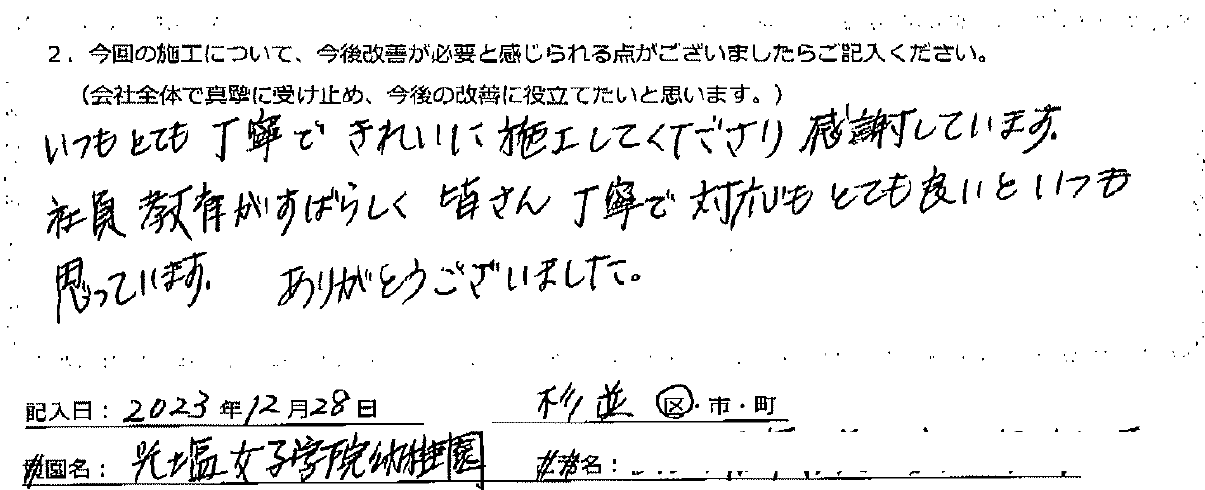 2．今回の施工について、今後改善が必要と感じられる点がございましたらご記入ください。
（会社全体で真摯に受け止め、今後の改善に役立てたいと思います。）
いつもとても丁寧できれいに施工してくださり感謝しています。
社員教育がすばらしく皆さん丁寧で対応もとても良いといつも
思っています。ありがとうございました。
記入日：2023年12月28日 杉並区・市・町
園名：光塩女子学院幼稚園 名：